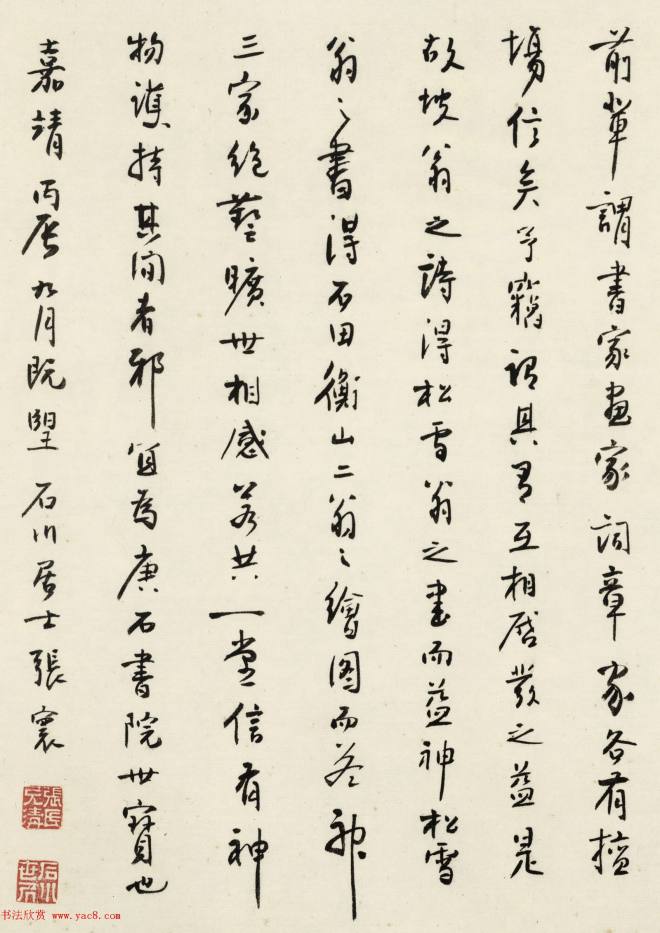 前輩謂書家畫家詞章家各有擅
場信矣予竊謂其有互相啓發之益是
故坡翁之詩得松雪翁之畫而益神松雪
翁之書得石田衡山二翁之繪图而益神
三家絶藝曠世相感若共一堂信有神
物護持其間者邪宜為庚石書院世寶也
嘉靖丙辰九月既望石川居士張寰
張氏
允清
石川
书法欣赏 www.yac8.com